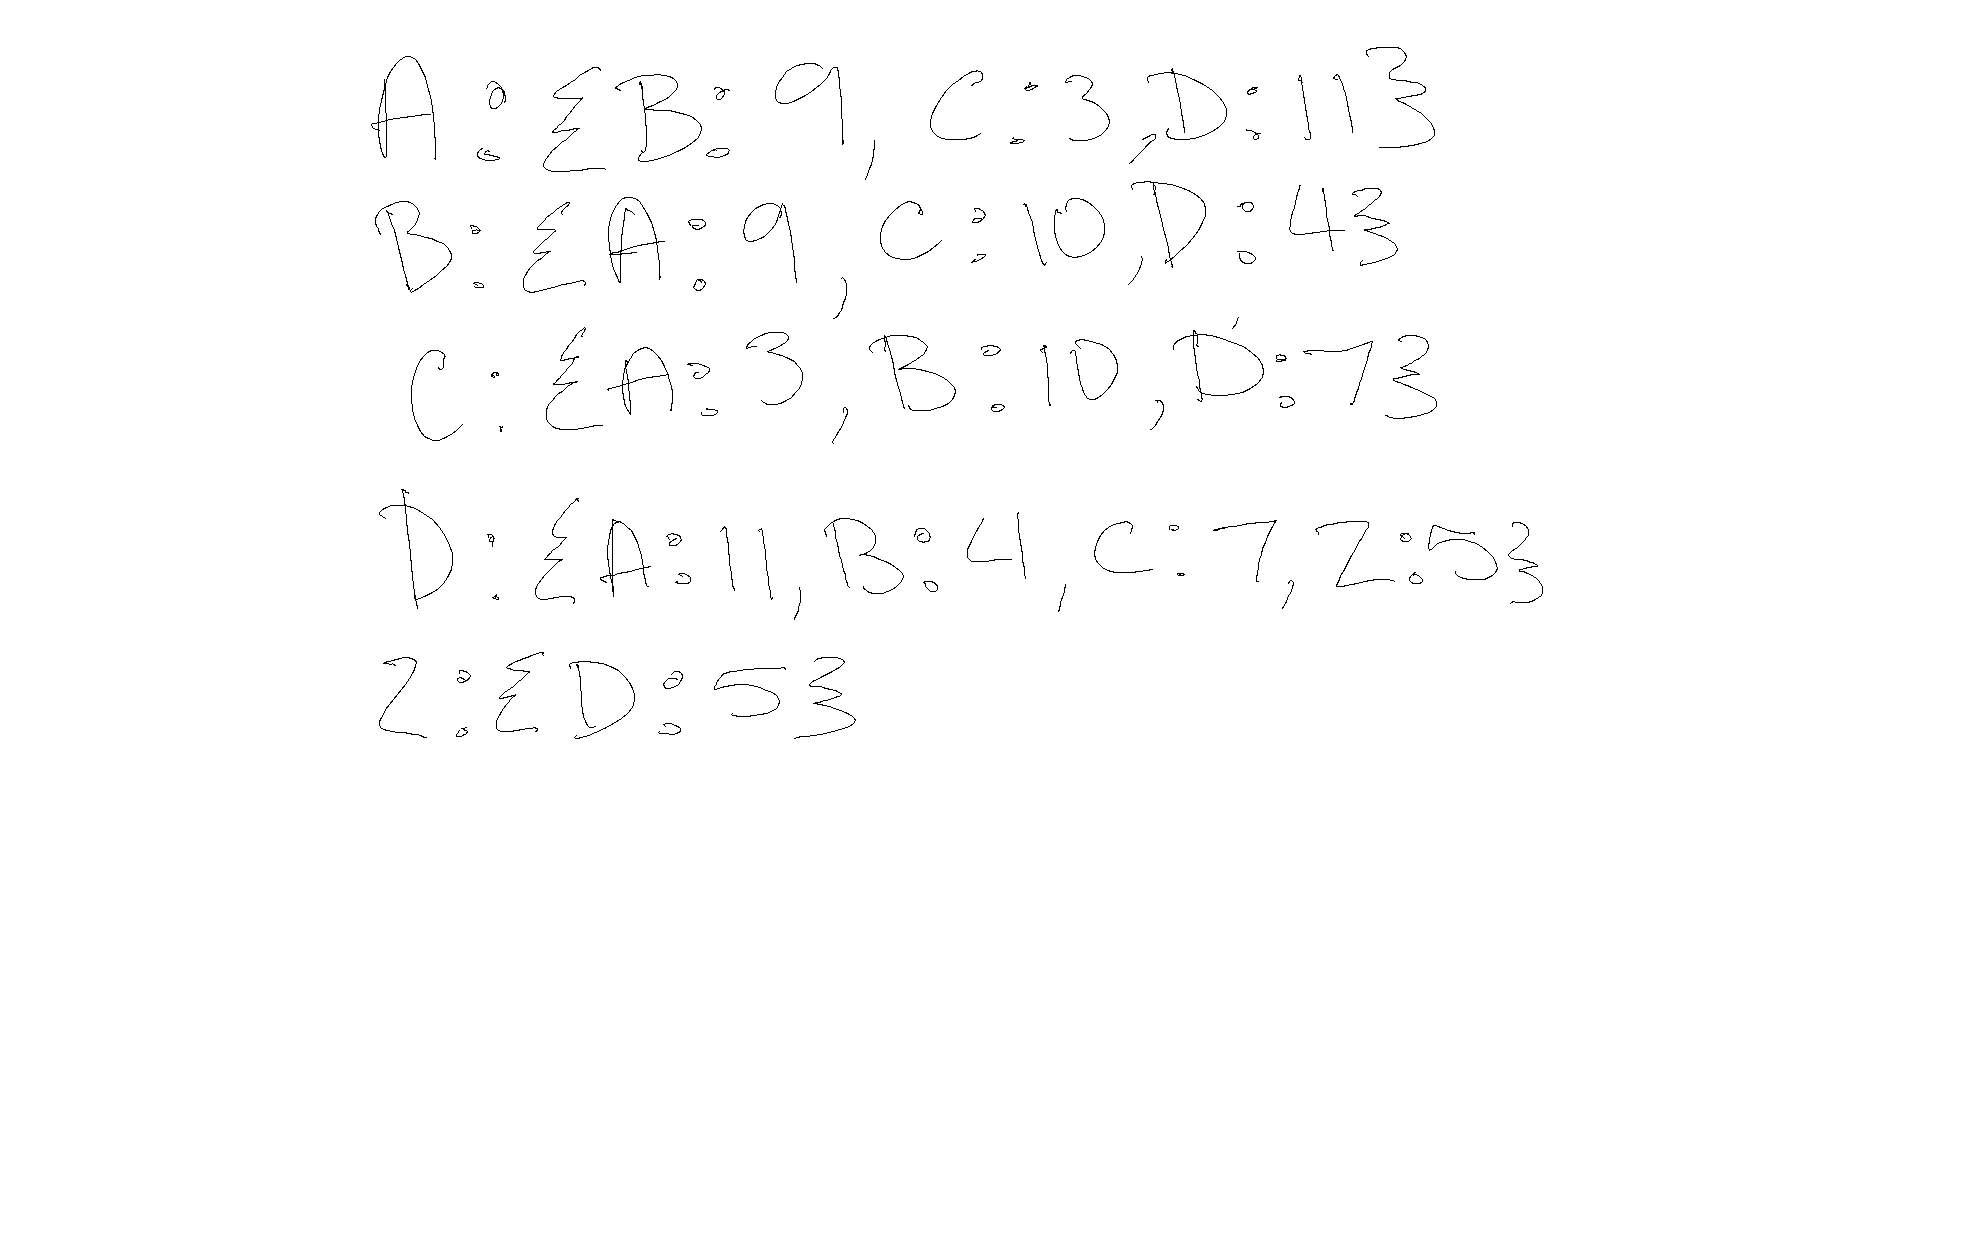 A: {B: 9, C: 3, D: 11}
B: {A: 9, C: 10, D: 4}
C: {A: 3, B: 10, D: 7}
D: {A: 11, B: 4, C: 7, Z: 5}
Z: {D: 5}